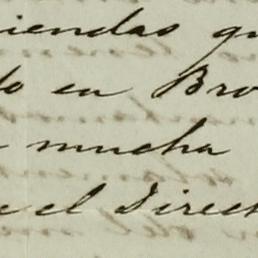 iendas qu
do en Bro
a mucha
e el Direct